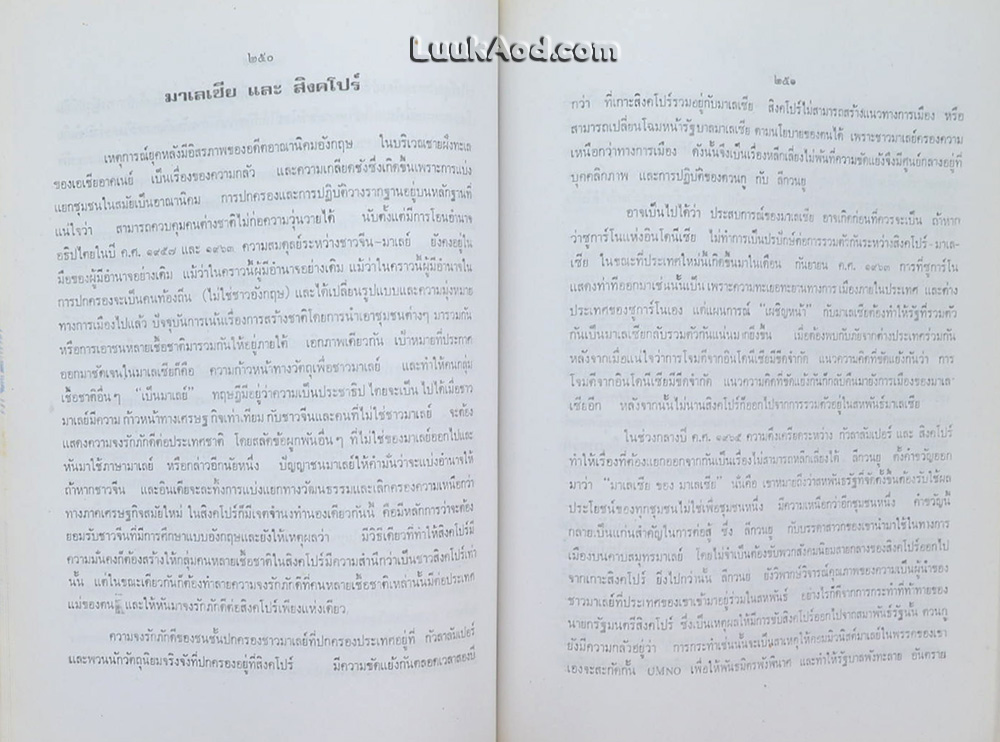 LuukAod.com
๒๕๐
มาเลเซีย และ สิงคโปร์
เหตุการณ์ยุคหลังมีอิสรภาพของอดีตอาณานิคมอังกฤษ ในบริเวณชายฝั่งทะเล
ของเอเซียอาคเนย์ เป็นเรื่องของความกลัว และความเกลียดชังซึ่งเกิดขึ้นเพราะการแบ่ง
แยกชุมชนในสมัยเป็นอาณานิคม การปกครองและการปฏิบัติวางรากฐานอยู่บนหลักฐานที่
แน่ใจว่า สามารถควบคุมคนต่างชาติไม่ก่อความวุ่นวายได้ นับตั้งแต่มีการโอนอำนาจ
อธิปไตยในปี ค.ศ. ๑๙๕๗ และ ๑๙๖๓ ความสมดุลย์ระหว่างชาวจีน-มาเลย์ ยังคงอยู่ใน
มือของผู้มีอำนาจอย่างเดิม แม้ว่าในคราวนี้ผู้มีอำนาจอย่างเดิม แม้ว่าในคราวนี้ผู้มีอำนาจใน
การปกครองจะเป็นคนท้องถิ่น (ไม่ใช่ชาวอังกฤษ) และได้เปลี่ยนรูปแบบและความมุ่งหมาย
ทางการเมืองไปแล้ว ปัจจุบันการเน้นเรื่องการสร้างชาติโดยการนำเอาชุมชนต่างๆ มารวมกัน
หรือการเอาชนหลายเชื้อชาติมารวมกันให้อยู่ภายใต้ เอกภาพเดียวกัน เป้าหมายที่ประกาศ
ออกมาชัดเจนในมาเลเซียก็คือ ความก้าวหน้าทางวัตถุเพื่อชาวมาเลย์ และทำให้คนกลุ่ม
เชื้อชาติอื่นๆ "เป็นมาเลย์" ทฤษฎีมีอยู่ว่าความเป็นประชาธิปไตยจะเป็นไปได้เมื่อชาว
มาเลย์มีความก้าวหน้าทางเศรษฐกิจเท่าเทียมกับชาวจีนและคนที่ไม่ใช่ชาวมาเลย์ จะต้อง
แสดงความจงรักภักดีต่อประเทศชาติ โดยสลัดข้อผูกพันอื่นๆ ที่ไม่ใช่ของมาเลย์ออกไปและ
หันมาใช้ภาษามาเลย์ หรือกล่าวอีกนัยหนึ่ง ปัญญาชนมาเลย์ให้คำมั่นว่าจะแบ่งอำนาจให้
ถ้าหากชาวจีน และอินเดียจะละทิ้งการแบ่งแยกทางวัฒนธรรมและเลิกครองความเหนือกว่า
ทางภาคเศรษฐกิจสมัยใหม่ ในสิงคโปร์ก็มีเจตจำนงทำนองเดียวกันนี้ คือมีหลักการว่าจะต้อง
ยอมรับชาวจีนที่มีการศึกษาแบบอังกฤษและยังให้เหตุผลว่า มีวิธีเดียวที่ทำให้สิงคโปร์มี
ความมั่นคงก็ต้องสร้างให้กลุ่มคนหลายเชื้อชาติในสิงคโปร์มีความสำนึกว่าเป็นชาวสิงคโปร์เท่า
นั้น แต่ในขณะเดียวกันก็ต้องทำลายความจงรักภักดีที่คนหลายเชื้อชาติเหล่านั้นมีต่อประเทศ
แม่ของตน และให้หันมาจงรักภักดีต่อสิงคโปร์เพียงแห่งเดียว
ความจงรักภักดีของชนชั้นปกครองชาวมาเลย์ที่ปกครองประเทศอยู่ที่ กัวลาลัมเปอร์
และพวกนักวัตถุนิยมจริงจังที่ปกครองอยู่ที่สิงคโปร์ มีความขัดแย้งกันตลอดเวลาสองปี
๒๕๑
กว่า ที่เกาะสิงคโปร์รวมอยู่กับมาเลเซีย สิงคโปร์ไม่สามารถสร้างแนวทางการเมือง หรือ
สามารถเปลี่ยนโฉมหน้ารัฐบาลมาเลเซีย ตามนโยบายของตนได้ เพราะชาวมาเลย์ครองความ
เหนือกว่าทางการเมือง ดังนั้นจึงเป็นเรื่องหลีกเลี่ยงไม่พ้นที่ความขัดแย้งจึงมีศูนย์กลางอยู่ที่
บุคคลิกภาพ และการปฏิบัติของตวนกู กับ ลีกวนยู
อาจเป็นไปได้ว่า ประสบการณ์ของมาเลเซีย อาจเกิดก่อนที่ควรจะเป็น ถ้าหาก
ว่าซูการ์โนแห่งอินโดนีเซีย ไม่ทำการเป็นปรปักษ์ต่อการรวมตัวกันระหว่างสิงคโปร์-มาเล-
เซีย ในขณะที่ประเทศใหม่นี้เกิดขึ้นมาในเดือน กันยายน ค.ศ. ๑๙๖๓ การที่ซูการ์โน
แสดงท่าทีออกมาเช่นนั้นเป็นเพราะความทะเยอทะยานทางการเมืองภายในประเทศ และต่าง
ประเทศของซูการ์โนเอง แต่แผนการณ์ "เผชิญหน้า" กับมาเลเซียต้องทำให้รัฐที่รวมตัว
กันเป็นมาเลเซียกลับรวมตัวกันแน่นมากยิ่งขึ้น เมื่อต้องพบกับภัยจากต่างประเทศร่วมกัน
หลังจากเมื่อแน่ใจว่าการโจมตีจากอินโดนีเซียมีขีดจำกัด แนวความคิดที่ขัดแย้งกันว่า การ
โจมตีจากอินโดนีเซียมีขีดจำกัด แนวความคิดที่ขัดแย้งกันก็กลับคืนมายังการเมืองของมาเล-
เซียอีก หลังจากนั้นไม่นานสิงคโปร์ก็ออกไปจากการรวมตัวอยู่ในสหพันธ์มาเลเซีย
ในช่วงกลางปี ค.ศ. ๑๙๖๕ ความตึงเครียดระหว่าง กัวลาลัมเปอร์ และ สิงคโปร์
ทำให้เรื่องที่ต้องแยกออกจากกันเป็นเรื่องไม่สามารถหลีกเลี่ยงได้ ลีกวนยู ตั้งคำขวัญออก
มาว่า "มาเลเซีย ของ มาเลเซีย" นั่นคือ เขาหมายถึงว่าสหพันธรัฐที่จัดตั้งขึ้นต้องรับใช้ผล
ประโยชน์ของทุกชุมชนไม่ใช่เพื่อชุมชนหนึ่ง มีความเหนือกว่าอีกชุมชนหนึ่ง คำขวัญนี้
กลายเป็นแก่นสำคัญในการต่อสู้ ซึ่ง ลีกวนยู กับบรรดาสาวกของเขานำมาใช้ในทางการ
เมืองบนคาบสมุทรมาเลย์ โดยไม่จำเป็นต้องขับพวกสังคมนิยมสายกลางของสิงคโปร์ออกไป
จากเกาะสิงคโปร์ ยิ่งไปกว่านั้น ลีกวนยู ยังวิพากษ์วิจารณ์คุณภาพของความเป็นผู้นำของ
ชาวมาเลย์ที่ประเทศของเขาเข้ามาอยู่ร่วมในสหพันธ์ อย่างไรก็ดีจากการกระทำที่ท้าทายของ
นายกรัฐมนตรีสิงคโปร์ ซึ่งเป็นเหตุผลให้มีการขับสิงคโปร์ออกไปจากสมาพันธ์รัฐนั้น ตวนกู
ยังมีความกลัวอยู่ว่า การกระทำเช่นนั้นจะเป็นสาเหตุให้คอมมิวนิสต์มาเลย์ในพรรคของเขา
เองจะสะกัดกั้น UMNO เพื่อให้พันธมิตรพังพินาศ และทำให้รัฐบาลพังทะลาย อันตราย